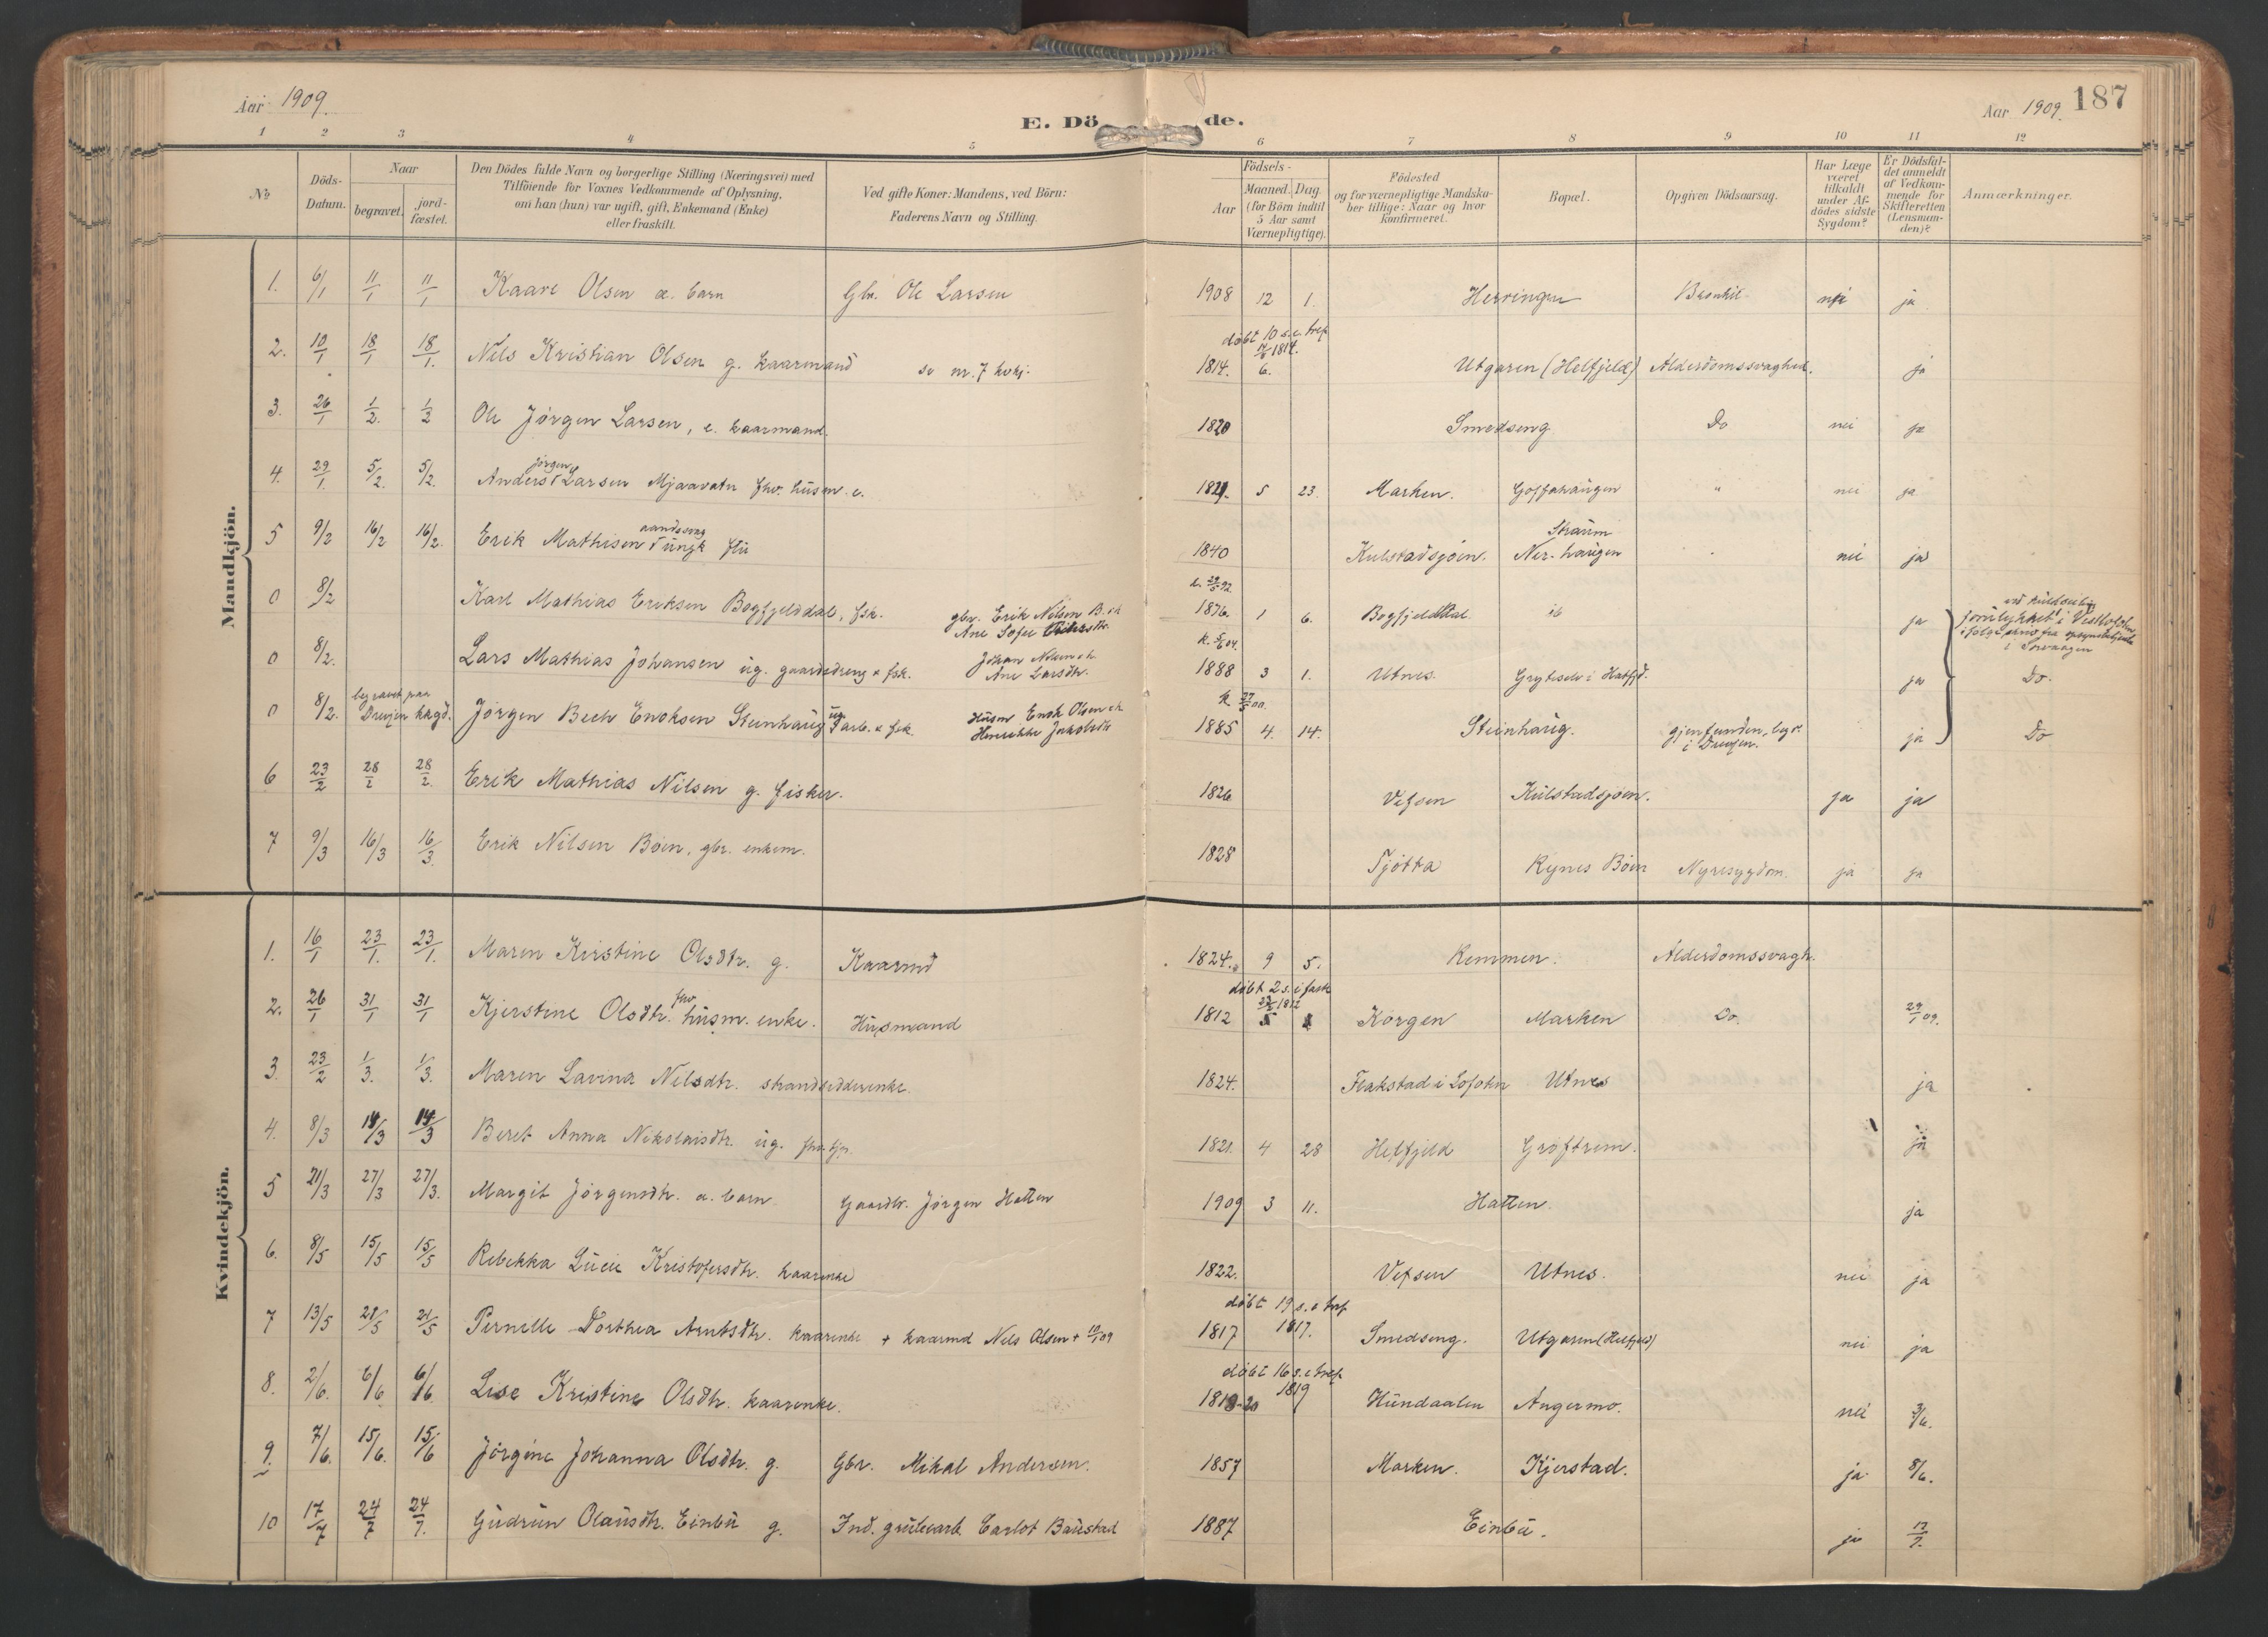 Aar 1909.
E. Dö de.
Aar 1909. 187
1 2 3 4 5 6 7 8 9 10 11 12
No
Döds-Datum.
Naar
begravet.
jord-fæstet.
Den Dödes fulde Navn og borgerlige Stilling (Næringsvei) med
Tilföiende for Voxnes Vedkommende af Oplysning,
om han (hun) var ugift, gift, Enkemand (Enke)
eller fraskilt.
Ved gifte Koner: Mandens, ved Börn:
Faderens Navn og Stilling.
Födsels-
Aar
Maaned. Dag.
(for Börn indtil
5 Aar samt
Værnepligtige).
Födested
og for værnepligtige Mandska-
ber tillige: Naar og hvor
konfirmeret.
Bopæl.
Opgiven Dödsaarsag.
Har Læge
været
tilkaldt
under Af-
dödes sidste
Sygdom?
Er Dödsfal-
det anmeldt
af Vedkom-
mende for
Skifteretten
(Lensman-
den)?
Anmærkninger.
Mandkjön.
1. 6/1 11/1 11/1 Kaare Olsen æ. barn Gbr. Ole Larsen 1908 12 1. Herringen Bronkit. nei ja
døbt 10 s.e. tref.
2. 10/1 18/1 18/1. Nils Kristian Olsen g. kaarmand se nr. 7 kvkj. 1814. 6. Utgaren (Helfjeld) Alderdomssvaghed. ja
3. 26/1 1/2. 1/2 Ole Jørgen Larsen, e. kaarmand. 1820 Smedseng Do nei ja
jørgen
4. 29/1. 5/2. 5/2. Anders Larsen Mjaavatn fhv. husm. e. 1821. 5 23. Marken. Goffahaugen " nei ja
aandssvag Straum
5 9/2 16/2 16/2. Erik Mathisen Tungk flu 1840 Kulstadsjøen. Ner-haugen nei ja
0 8/2 Karl Mathias Eriksen Bogfjelddal, fsk. gbr. Erik Nilsen B. o h 1876. 1 6. Bogfjelddal ja
Ane Sofie
k. 5/6 04.
0 8/2. Lars Mathias Johansen ug. gaardsdreng & fsk. Johan Nilsen o h. 1888 3 1. Utnes. i Hatfjd. ja Do.
Ane Larsdtr.
begravet paa
0 8/2. Drevjen kagd. Jørgen Bech Enoksen Steinhaug ug. arb. & fsk. Husm Enok Olsen o h 1885 4. 14. Steinhaug. gjenfunden, begr. ja Do
Henrikke Jakobsdtr i Drevjen.
6 23/2 28/2 28/2. Erik Mathias Nilsen g. fisker. 1826 Vefsen Kulstadsjøen. ja ja
7 9/3 16/3 16/3. Erik Nilsen Bøen, gbr. enkem. 1828 Tjøtta Rynes Bøen Nyresygdom. ja ja
Kvindekjön.
1. 16/1 23/1. 23/1. Maren Kirstine Olsdtr. g. Kaarmd 1824. 9 5. Remmen. Alderdomssvagh.
fhv. døbt 2 s. i faste
2. 26/1 31/1 31/1 Kjerstine Olsdtr. husm. enke. Husmand 1812 Korgen Marken Do. 29/1 09.
3. 23/2 1/3. 1/3. Maren Lavina Nilsdtr. strandsidderenke. 1824. Flakstad i Lofoten Utnes ja
4. 8/3 14/3 14/3 Beret Anna Nikolaisdtr. ug. fhv. tjp. 1821. 4 28 Helfjeld Grøftrem. ja
5 21/3 27/3 27/3. Margit Jørgensdtr. æ. barn Gaardbr. Jørgen Hatten 1909 3 11. Hatten. ja
6. 8/5 15/5 15/5 Rebekka Lucie Kristofersdtr. kaarenke 1822. Vefsen Utnes. nei ja
døbt 19 s. e tref
7 13/5 21/5 21/5 Pernelle Dorthea Arntsdtr. kaarenke + kaarmd Nils Olsen + 10/1 09 1817 1817. Smedseng. Utgaren (Helfjeld) nei ja
døbt 16 s. e tref.
8. 2/6. 6/6 6/6 Lise Kristine Olsdtr. kaarenke. 1819 Hundaalen Angermo. nei 3/6.
9. 7/6. 15/6. 15/6 Jørgine Johanna Olsdtr. g. Gbr. Mikal Andersen. 1857 Marken. Kjerstad. ja 8/6.
10 17/7 24/7 24/7. Gudrun Olausdtr. Einbu g. Ind. grubearb. Carlot Baustad 1887 Einbu. ja 17/7.